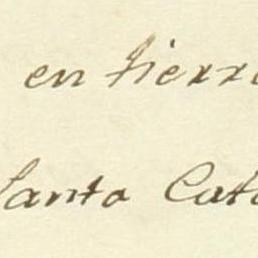 en tierra
Santa Cata